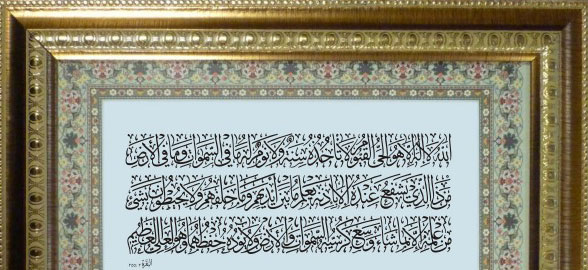 الله لا إله إلا هو الحي القيوم لا تأخذه سنة ولا نوم له ما في السموات وما في الأرض
من ذا الذي يشفع عنده إلا بإذنه يعلم ما بين أيديهم وما خلفهم ولا يحيطون بشيء
من علمه إلا بما شاء وسع كرسيه السموات والأرض ولا يؤده حفظهما وهو العلي العظيم
البقرة ٢٥٥